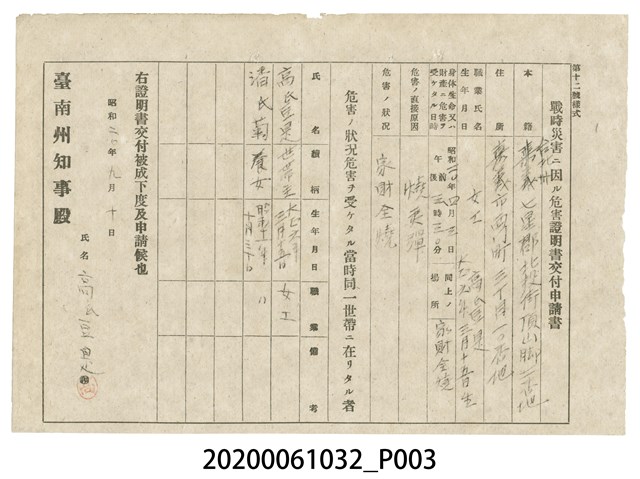 第十二號樣式
戰時災害ニ因ル危害證明書交付申請書
本籍 七星郡北投街頂山脚 番地
住所 嘉義市 番地
職業氏名 女工 高氏豆粜
生年月日 大正六年三月十五日生
身体生命又ハ財產ニ危害ヲ受ケタル日時 昭和二〇年四月三日 午前後 三時三〇分 同上ノ場所 家財全燒
危害ノ直接原因 燒夷彈
危害ノ狀況 家財全燒
危害ノ狀况危害ヲ受ケタル當時同一世帶ニ在リタル者
氏名 續柄 生年月日 職業 備考
世帶主 大正六年三月十五日 女工
氏菊 養女 昭和十一年十月三十日 〃
右證明書交付被成下度及申請候也
昭和二〇年九月十日
氏名 高氏豆
臺南州知事殿
20200061032_P003